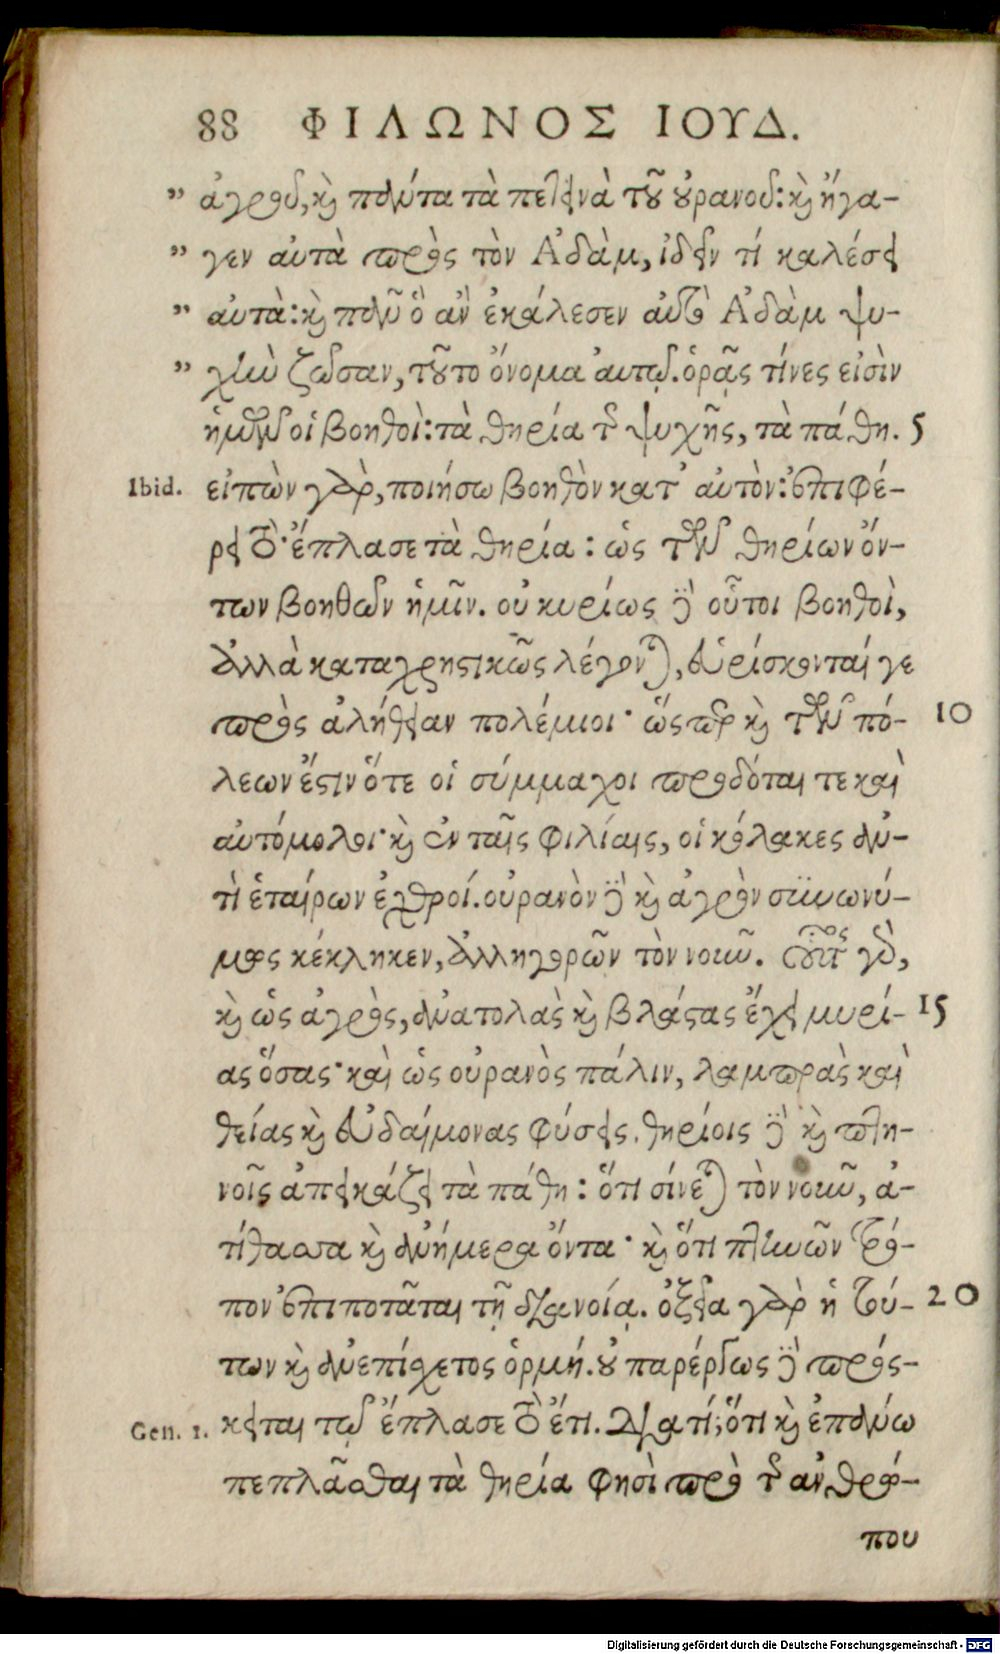 88 ΦΙΛΩΝΟΣ ΙΟΥΔ.
" ἀγροῦ, καὶ πάντα τὰ πετεινὰ τοῦ οὐρανοῦ: καὶ ἤγα-
" γεν αὐτὰ πρὸς τὸν Ἀδὰμ, ἰδεῖν τί καλέσει
" αὐτὰ: καὶ πᾶν ὃ ἂν ἐκάλεσεν αὐτὸ Ἀδὰμ ψυ-
" χὴν ζῶσαν, τοῦτο ὄνομα αὐτῷ. ὁρᾷς τίνες εἰσὶν
ἡμῶν οἱ βοηθοὶ: τὰ θηρία τῆς ψυχῆς, τὰ πάθη. 5
Ibid. εἰπὼν γὰρ, ποιήσω βοηθὸν κατ' αὐτὸν: ἐπιφέ-
ρει τὸ· ἔπλασε τὰ θηρία: ὡς τῶν θηρίων ὄν-
των βοηθῶν ἡμῖν. οὐ κυρίως δὲ οὗτοι βοηθοὶ,
ἀλλὰ καταχρηστικῶς λέγονται, εὑρίσκονται γε
πρὸς ἀλήθειαν πολέμιοι· ὥσπερ καὶ τῶν πό- 10
λεων ἔστιν ὅτε οἱ σύμμαχοι προδόται τε καὶ
αὐτόμολοι· καὶ ἐν ταῖς φιλίαις, οἱ κόλακες ἀν-
τὶ ἑταίρων ἐχθροί. οὐρανὸν δὲ καὶ ἀγρὸν συνωνύ-
μως κέκληκεν, ἀλληγορῶν τὸν νοῦν. οὗτος γὰρ,
καὶ ὡς ἀγρὸς, ἀνατολὰς καὶ βλάστας ἔχει μυρί- 15
ας ὅσας· καὶ ὡς οὐρανὸς πάλιν, λαμπρὰς καὶ
θείας καὶ εὐδαίμονας φύσεις. θηρίοις δὲ καὶ πτη-
νοῖς ἀπεικάζει τὰ πάθη: ὅτι σίνεται τὸν νοῦν, ἀ-
τίθασσα καὶ ἀνήμερα ὄντα· καὶ ὅτι πτηνῶν τρό-
πον ἐπιποτᾶται τῇ διανοίᾳ. ὀξεῖα γὰρ ἡ τού- 20
των καὶ ἀνεπίσχετος ὁρμή. οὐ παρέργως δὲ πρόσ-
Gen. 1. κειται τῷ ἔπλασε τὸ ἔτι. Διατί; ὅτι καὶ ἐπάνω
πεπλᾶσθαι τὰ θηρία φησὶ πρὸ τοῦ ἀνθρώ-
που
Digitalisierung gefördert durch die Deutsche Forschungsgemeinschaft - DFG